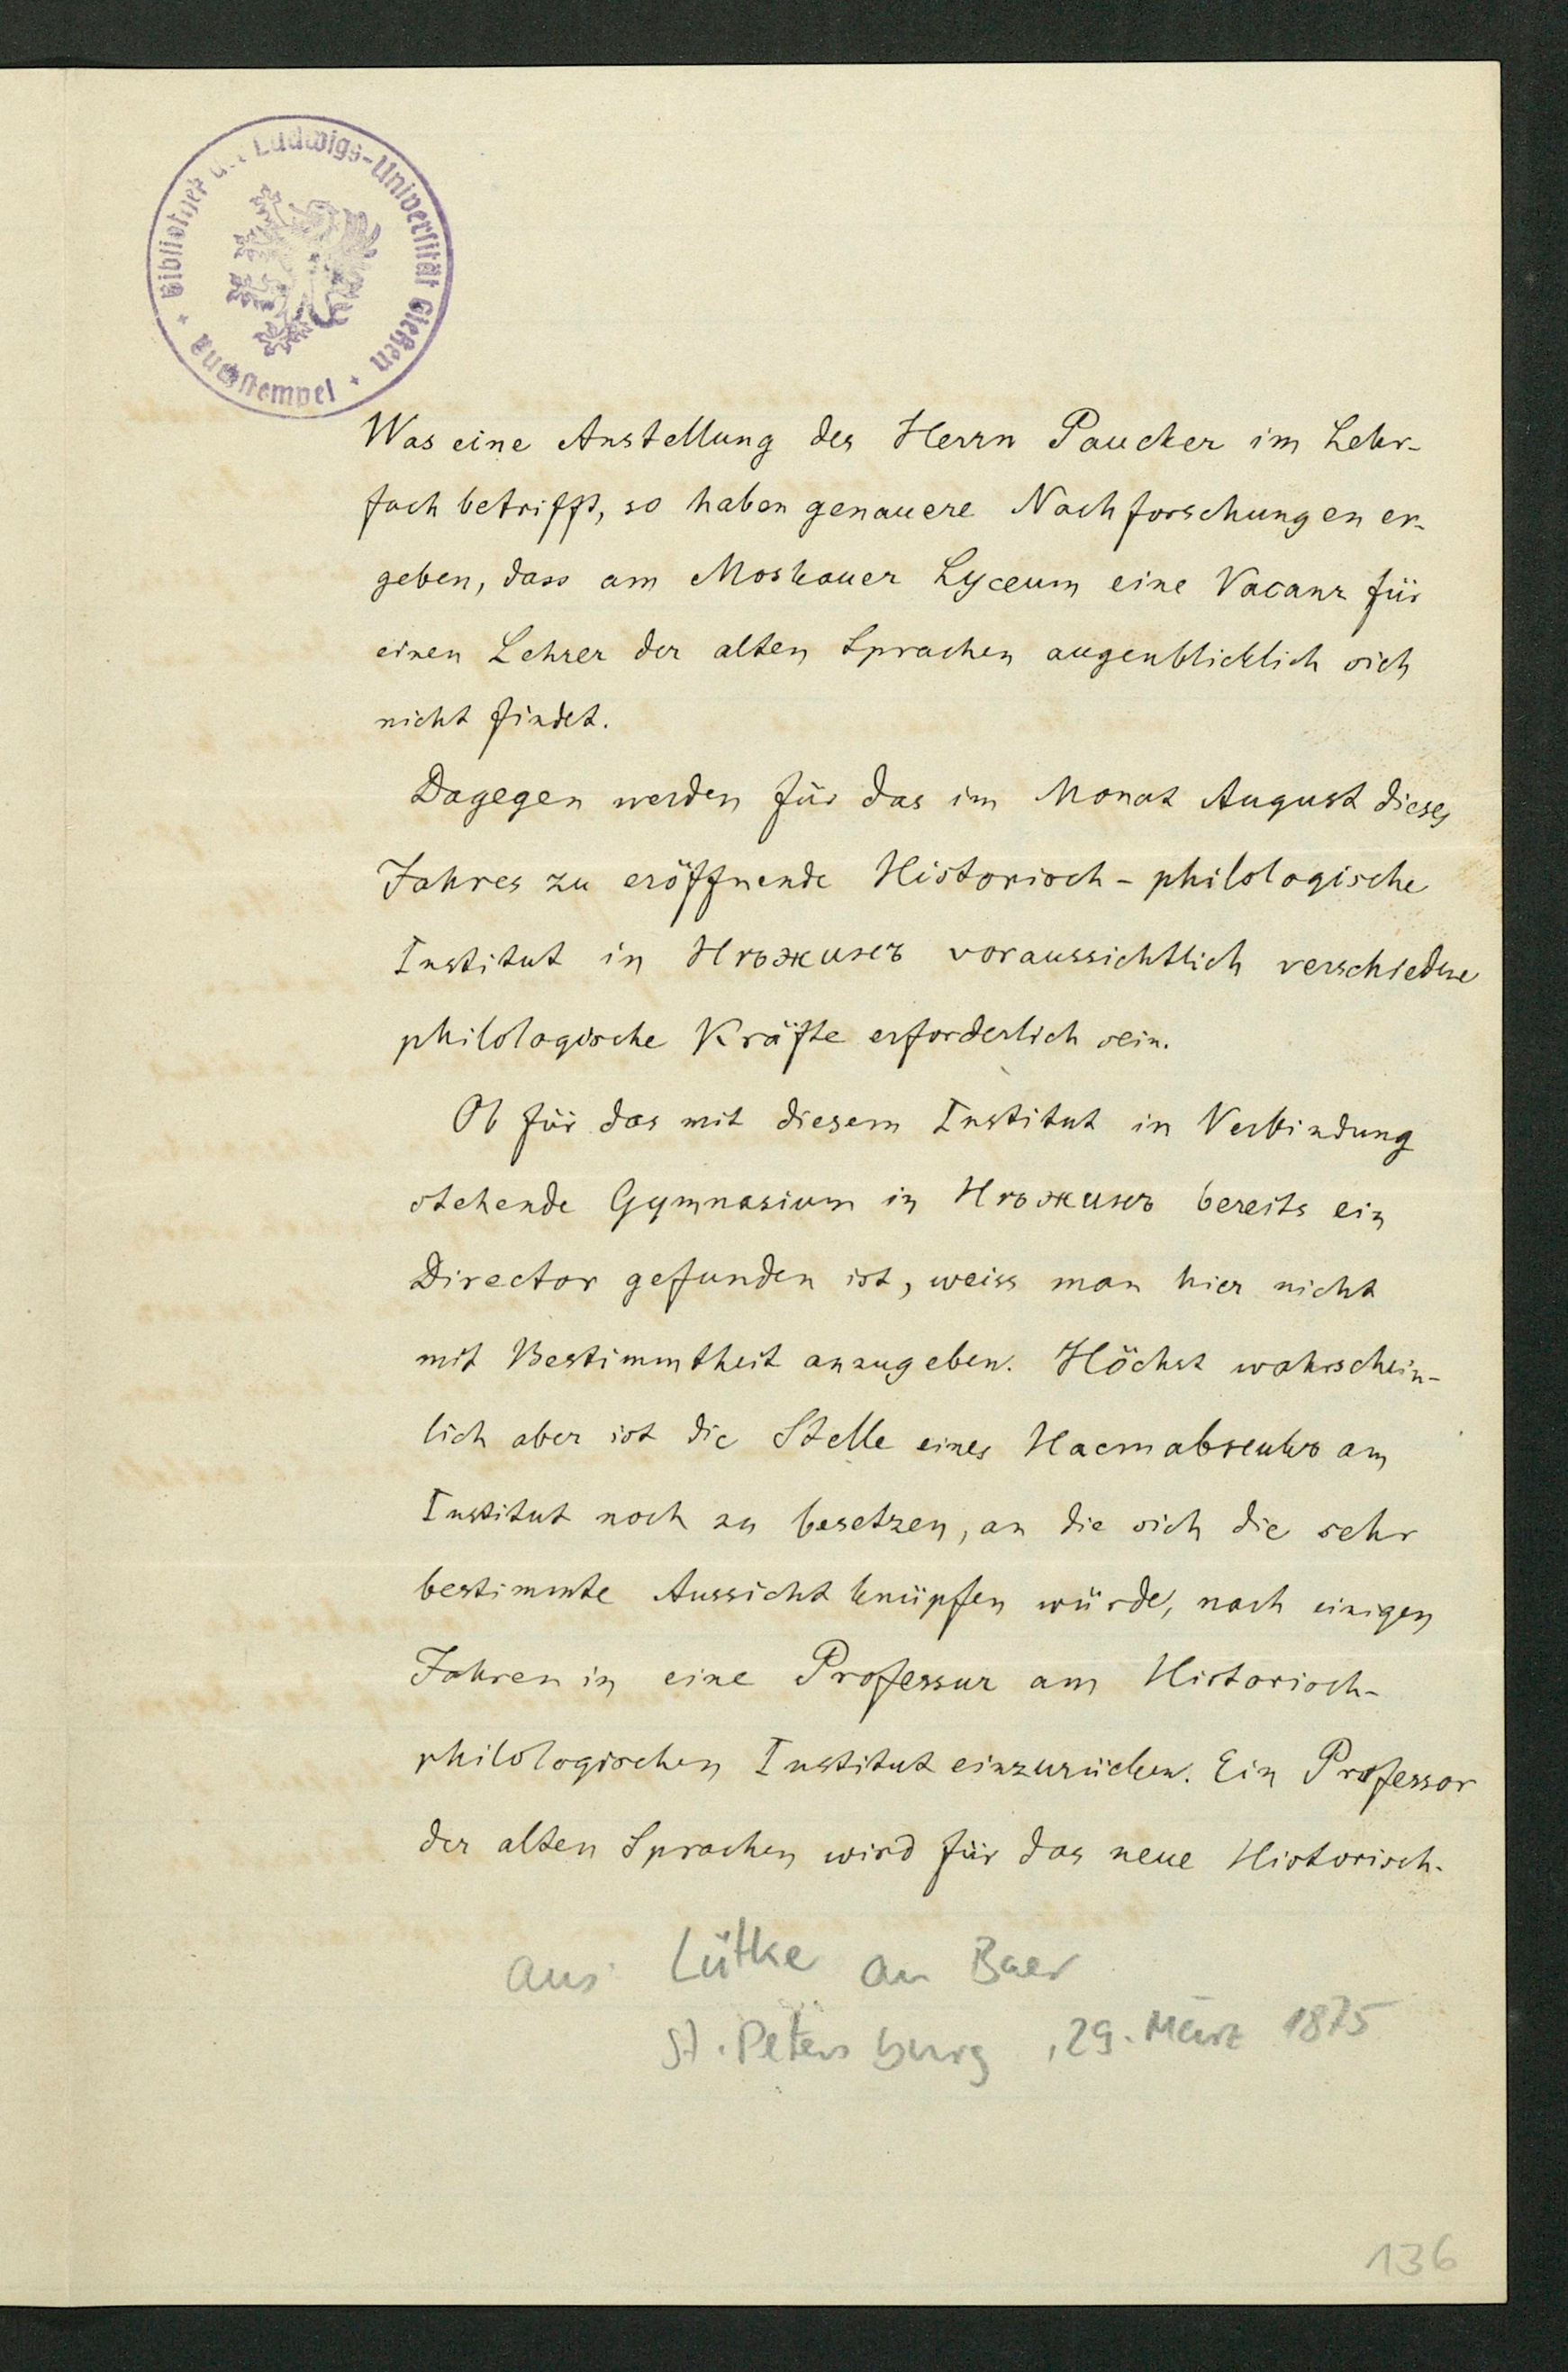 Bibliothek der Ludwigs-Universität Gießen
Buchstempel
Was eine Anstellung des Herrn Paucker im Lehr-
fach betrifft, so haben genauere Nachforschungen er-
geben, dass am Moskauer Lyceum eine Vacanz für
einen Lehrer der alten Sprachen augenblicklich sich
nicht findet.
Dagegen werden für das im Monat August dieses
Jahres zu eröffnende Historisch-philologische
Institut in Нѣжинѣ voraussichtlich verschiedene
philologische Kräfte erforderlich sein.
Ob für das mit diesem Institut in Verbindung
stehende Gymnasium in Нѣжинѣ bereits ein
Director gefunden ist, weiss man hier nicht
mit Bestimmtheit anzugeben. Höchst wahrschein-
lich aber ist die Stelle eines Наставникъ am
Institut noch zu besetzen, an die sich die sehr
bestimmte Aussicht knüpfen würde, nach einigen
Jahren in eine Professur am Historisch-
philologischen Institut einzurücken. Ein Professor
der alten Sprachen wird für das neue Historisch-
aus Lütke an Baer
St. Petersburg, 29. März 1875
136